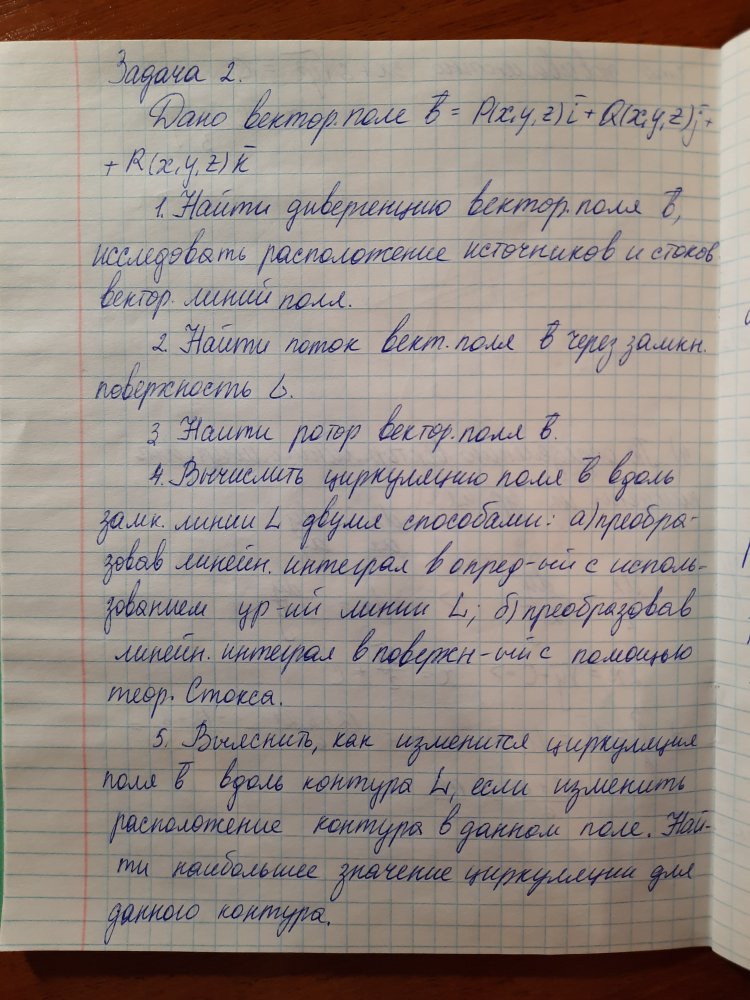 Задача 2.
Дано вектор.поле b̄ = P(x,y,z)ī + Q(x,y,z)j̄ +
+ R(x,y,z)k̄
1. Найти дивергенцию вектор.поля b̄,
исследовать расположение источников и стоков
вектор. линий поля.
2. Найти поток вект. поля b̄ через замкн.
поверхность L.
3 Найти ротор вектор.поля b̄.
4. Вычислить циркуляцию поля b̄ вдоль
замк. линии L двумя способами: а)преобра-
зовав линейн. интеграл в опред-ый с исполь-
зованием ур-ий линии L; б)преобразовав
линейн. интеграл в поверхн-ый с помощью
теор. Стокса.
5. Выяснить, как изменится циркуляция
поля b̄ вдоль контура L, если изменить
расположение контура в данном поле. Най-
ти наибольшее значение циркуляции для
данного контура.